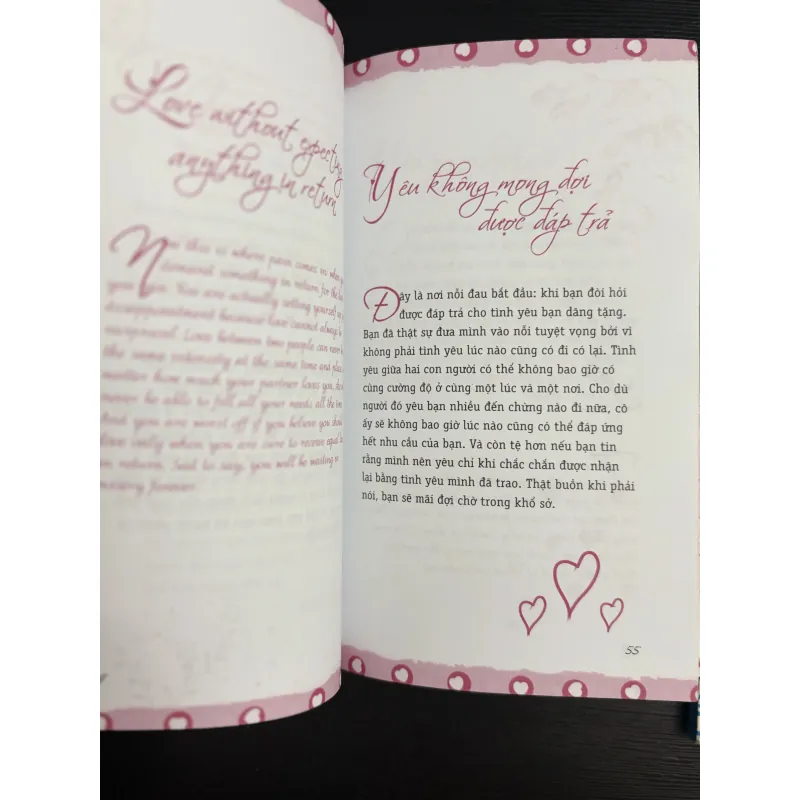 Love without expecting
anything in return
Now this is where pain comes in when you
demand something in return for the love
you give. You are actually setting yourself
disappointment because love cannot always be
reciprocal. Love between two people can never be
the same intensity at the same time and place.
matter how much your partner loves you,
never be able to fill all your needs all the time.
And you are worst off if you believe you should
love only when you are sure to receive equal
in return. Sad to say, you will be waiting in
misery forever.
Yêu không mong đợi
được đáp trả
Đây là nơi nỗi đau bắt đầu: khi bạn đòi hỏi
được đáp trả cho tình yêu bạn dâng tặng.
Bạn đã thật sự đưa mình vào nỗi tuyệt vọng bởi vì
không phải tình yêu lúc nào cũng có đi có lại. Tình
yêu giữa hai con người có thể không bao giờ có
cùng cường độ ở cùng một lúc và một nơi. Cho dù
người đó yêu bạn nhiều đến chừng nào đi nữa, cô
ấy sẽ không bao giờ lúc nào cũng có thể đáp ứng
hết nhu cầu của bạn. Và còn tệ hơn nếu bạn tin
rằng mình nên yêu chỉ khi chắc chắn được nhận
lại bằng tình yêu mình đã trao. Thật buồn khi phải
nói, bạn sẽ mãi đợi chờ trong khổ sở.
55